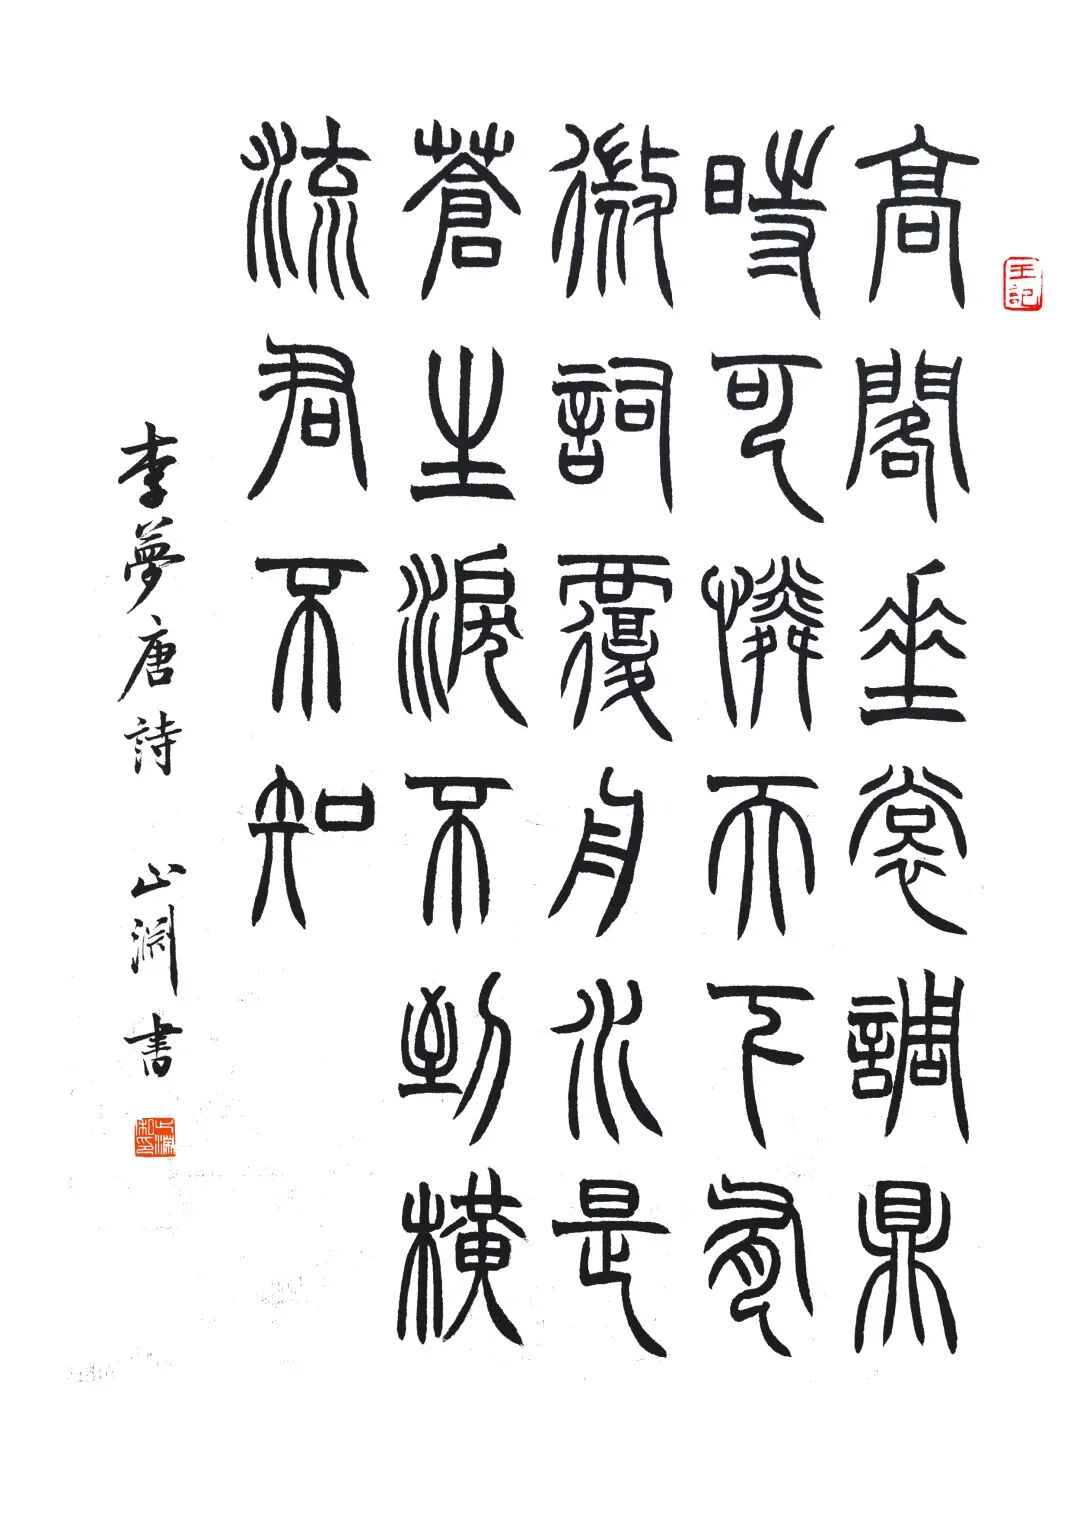 高閣垂裳調鼎
時可憐天下
微詞覆舟水是
蒼生淚不到橫
流君不知
李夢唐詩 山淵書
王記
山淵私印